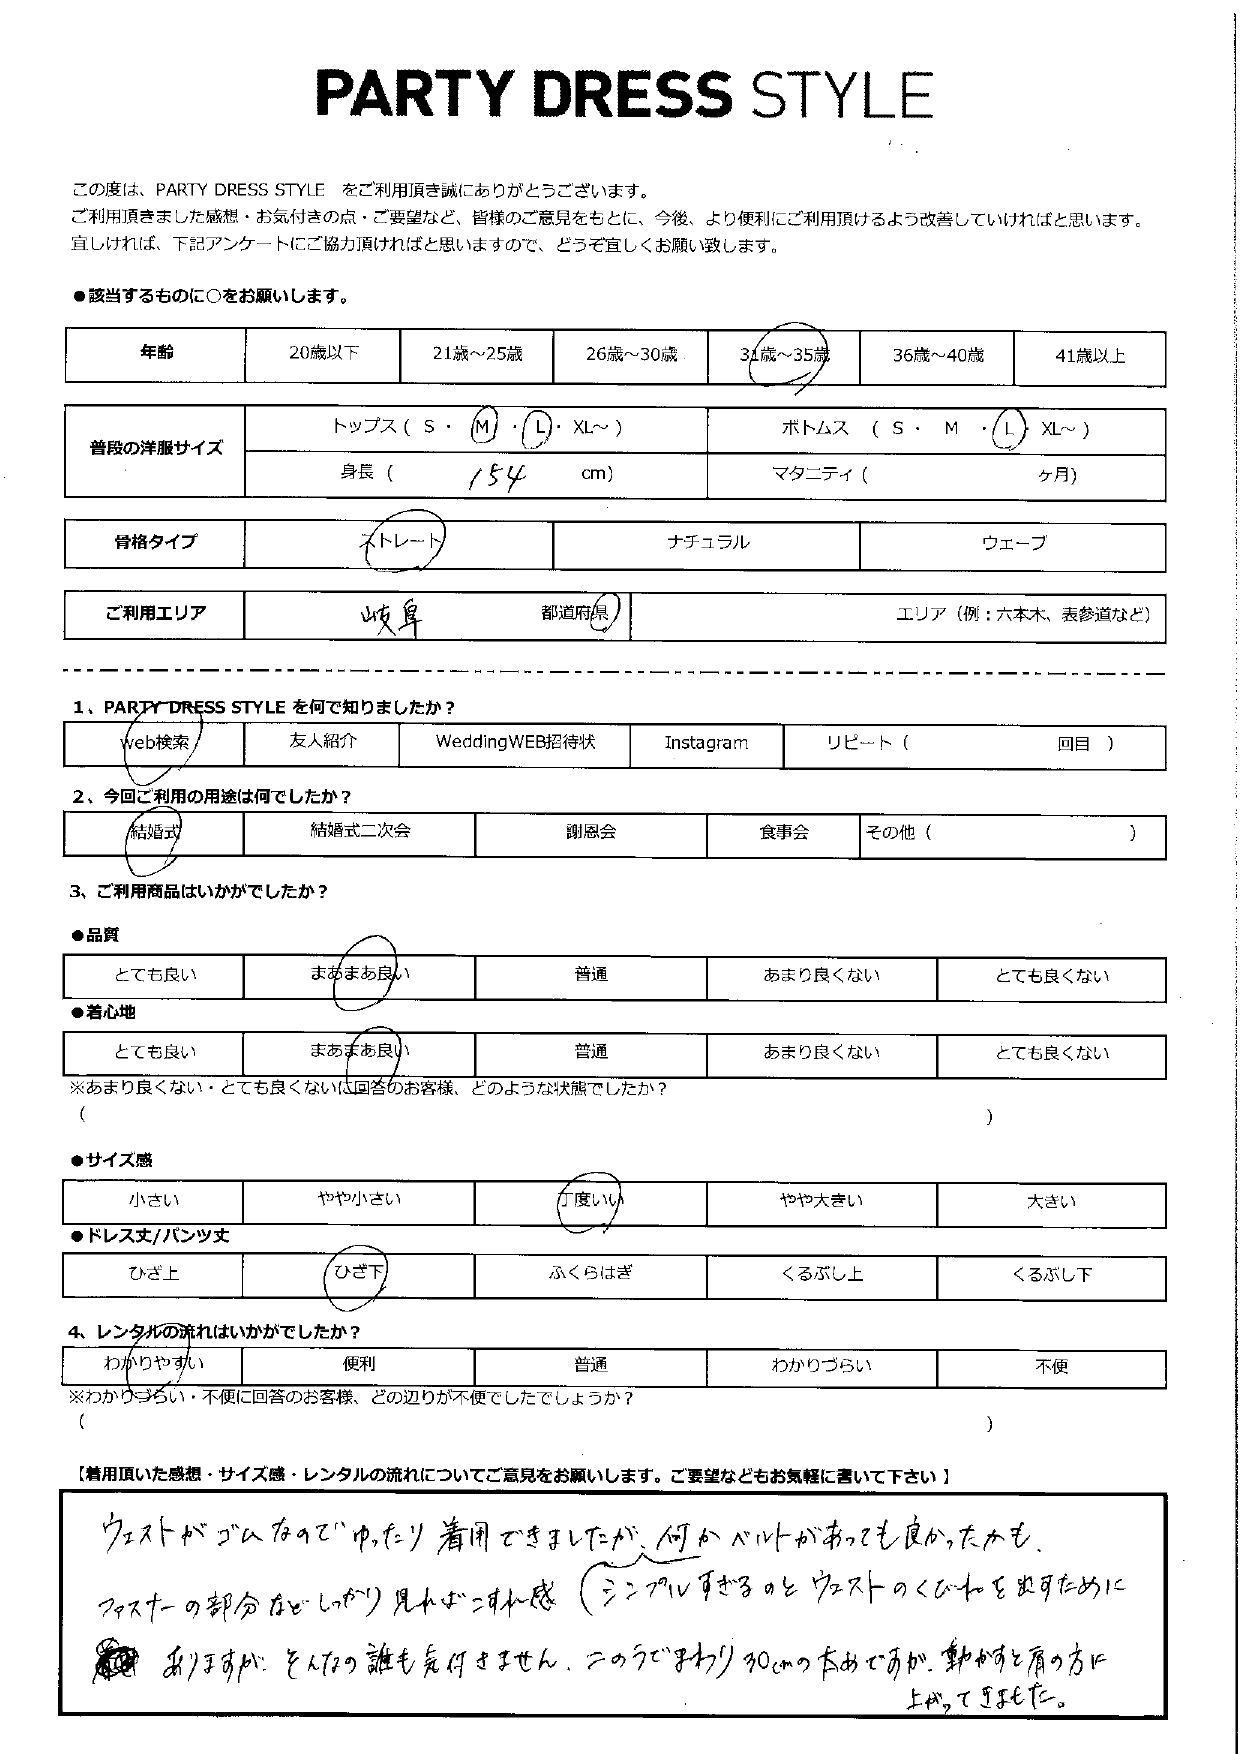 PARTY DRESS STYLE
この度は、PARTY DRESS STYLE をご利用頂き誠にありがとうございます。
ご利用頂きました感想・お気付きの点・ご要望など、皆様のご意見をもとに、今後、より便利にご利用頂けるよう改善していければと思います。
宜しければ、下記アンケートにご協力頂ければと思いますので、どうぞ宜しくお願い致します。
●該当するものに○をお願いします。
年齢 20歳以下 21歳～25歳 26歳～30歳 31歳～35歳 36歳～40歳 41歳以上
普段の洋服サイズ トップス ( S ・ M ・ L ・ XL～ ) ボトムス ( S ・ M ・ L ・ XL～ )
身長 ( 154 cm) マタニティ ( ヶ月)
骨格タイプ ストレート ナチュラル ウェーブ
ご利用エリア 岐阜 都道府県 エリア (例：六本木、表参道など)
1、PARTY DRESS STYLE を何で知りましたか？
web検索 友人紹介 WeddingWEB招待状 Instagram リピート ( 回目 )
2、今回ご利用の用途は何でしたか？
結婚式 結婚式二次会 謝恩会 食事会 その他 ( )
3、ご利用商品はいかがでしたか？
●品質
とても良い まあまあ良い 普通 あまり良くない とても良くない
●着心地
とても良い まあまあ良い 普通 あまり良くない とても良くない
※あまり良くない・とても良くないに回答のお客様、どのような状態でしたか？
( )
●サイズ感
小さい やや小さい 丁度いい やや大きい 大きい
●ドレス丈/パンツ丈
ひざ上 ひざ下 ふくらはぎ くるぶし上 くるぶし下
4、レンタルの流れはいかがでしたか？
わかりやすい 便利 普通 わかりづらい 不便
※わかりづらい・不便に回答のお客様、どの辺りが不便でしたでしょうか？
( )
【着用頂いた感想・サイズ感・レンタルの流れについてご意見をお願いします。ご要望などもお気軽に書いて下さい】
ウエストがゴムなのでゆったり着用できましたが、何かベルトがあっても良かったかも、
ファスナーの部分などしっかり見ればこすれ感 (シンプルすぎるのとウエストのくびれを出すために
ありますが、そんなの誰も気付きません、このうでまわり30cmの太めですが、動かすと肩の方に
上がってきました。